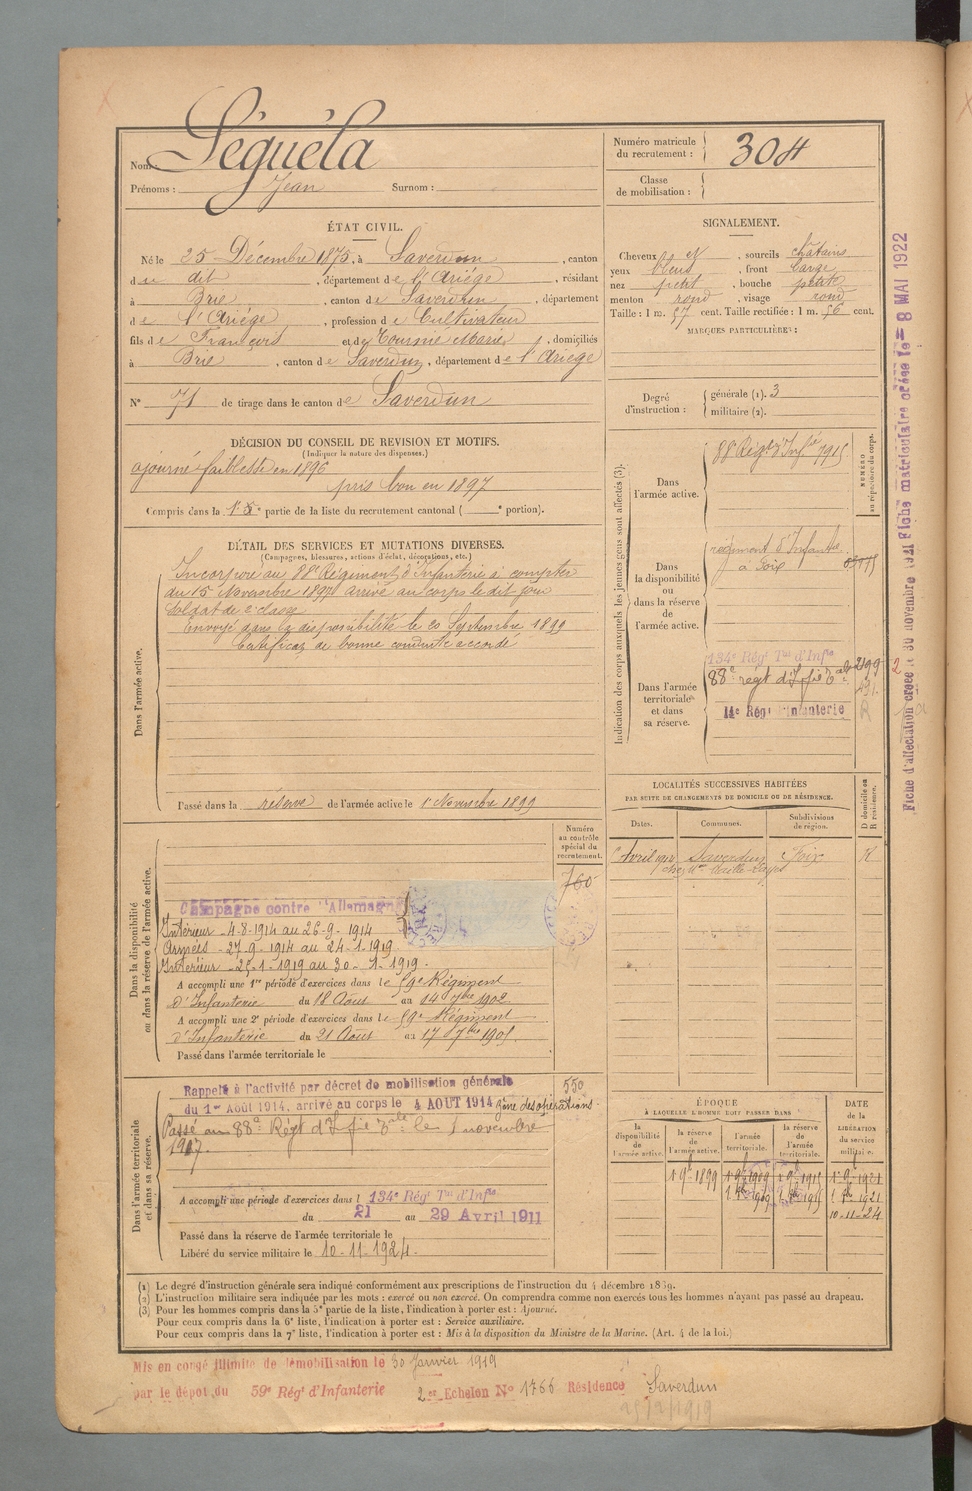 Nom: Séguéla
Prénoms : Jean Surnom :
Numéro matricule du recrutement : 304
Classe de mobilisation :
ÉTAT CIVIL.
Né le 25 Décembre 1875, à Saverdun, canton
du dit, département de l'Ariège, résidant
à Brie, canton de Saverdun, département
de l'Ariège, profession de Cultivateur
fils de François et de Tourné Marie, domiciliés
à Brie, canton de Saverdun, département de l'Ariège
N° 71 de tirage dans le canton de Saverdun
SIGNALEMENT.
Cheveux et, sourcils châtains
yeux bleus, front large
nez petit, bouche petite
menton rond, visage rond
Taille : 1 m. 57 cent. Taille rectifiée : 1 m. 56 cent.
MARQUES PARTICULIÈRES :
Degré d'instruction : générale (1). 3
militaire (2).
DÉCISION DU CONSEIL DE REVISION ET MOTIFS.
(Indiquer la nature des dispenses.)
ajourné faiblesse en 1896
pris bon en 1897
Compris dans la 1e partie de la liste du recrutement cantonal ( e portion).
DÉTAIL DES SERVICES ET MUTATIONS DIVERSES.
(Campagnes, blessures, actions d'éclat, décorations, etc.)
Dans l'armée active.
Incorporé au 88e Régiment d'Infanterie à compter
du 15 Novembre 1897 arrivé au corps le dit jour
soldat de 2e classe
Envoyé dans la disponibilité le 20 Septembre 1899
Certificat de bonne conduite accordé
Passé dans la réserve de l'armée active le 1er Novembre 1899
Indication des corps auxquels les jeunes gens sont affectés (3).
NUMÉRO au répertoire du corps.
Dans l'armée active.
88e Régt d'Infie 7915
Dans la disponibilité ou dans la réserve de l'armée active.
régiment d'Infanterie
à Foix
Dans l'armée territoriale et dans sa réserve.
134e Régt Tal d'Infie 2199
88e régt d'Ifie Tale
14e Régt Infanterie
LOCALITÉS SUCCESSIVES HABITÉES
PAR SUITE DE CHANGEMENTS DE DOMICILE OU DE RÉSIDENCE.
Dates. Communes. Subdivisions de région. D domicile ou R résidence.
Avril 1912 Saverdun Foix R
Dans la disponibilité ou dans la réserve de l'armée active.
Numéro au contrôle spécial du recrutement.
760
Campagne contre l'Allemagne
Intérieur - 4-8-1914 au 26-9-1914
Armées - 27-9-1914 au 24-1-1919
Intérieur - 25-1-1919 au 30-1-1919.
A accompli une 1re période d'exercices dans le 59e Régiment
d'Infanterie du 18 Août au 14 7bre 1902
A accompli une 2e période d'exercices dans le 59e Régiment
d'Infanterie du 21 Août au 17 7bre 1905
Passé dans l'armée territoriale le
Dans l'armée territoriale et dans sa réserve.
Rappelé à l'activité par décret de mobilisation générale 550
du 1er Août 1914, arrivé au corps le 4 AOUT 1914 zône des opérations
Passé au 88e Régt d'Ifie Tale le 1 novembre
1917.
A accompli une période d'exercices dans l 134e Régt Tal d'Infie
du 21 au 29 Avril 1911
Passé dans la réserve de l'armée territoriale le
Libéré du service militaire le 10-11-1924.
ÉPOQUE
À LAQUELLE L'HOMME DOIT PASSER DANS
DATE de la LIBÉRATION du service militaire.
la disponibilité de l'armée active. la réserve de l'armée active. l'armée territoriale. la réserve de l'armée territoriale.
1-9-1899 1-9-1909 1-9-1915 1-9-1921
1909 1915 1921
10-11-24
(1) Le degré d'instruction générale sera indiqué conformément aux prescriptions de l'instruction du 4 décembre 1889.
(2) L'instruction militaire sera indiquée par les mots : exercé ou non exercé. On comprendra comme non exercés tous les hommes n'ayant pas passé au drapeau.
(3) Pour les hommes compris dans la 5e partie de la liste, l'indication à porter est : Ajourné.
Pour ceux compris dans la 6e liste, l'indication à porter est : Service auxiliaire.
Pour ceux compris dans la 7e liste, l'indication à porter est : Mis à la disposition du Ministre de la Marine. (Art. 4 de la loi.)
Mis en congé illimité de démobilisation le 30 Janvier 1919
par le dépôt du 59e Régt d'Infanterie 2e Echelon N° 1766 Résidence Saverdun
Fiche d'affectation créée le 30 novembre 1921 Fiche matriculaire créée le 8 MAI 1922